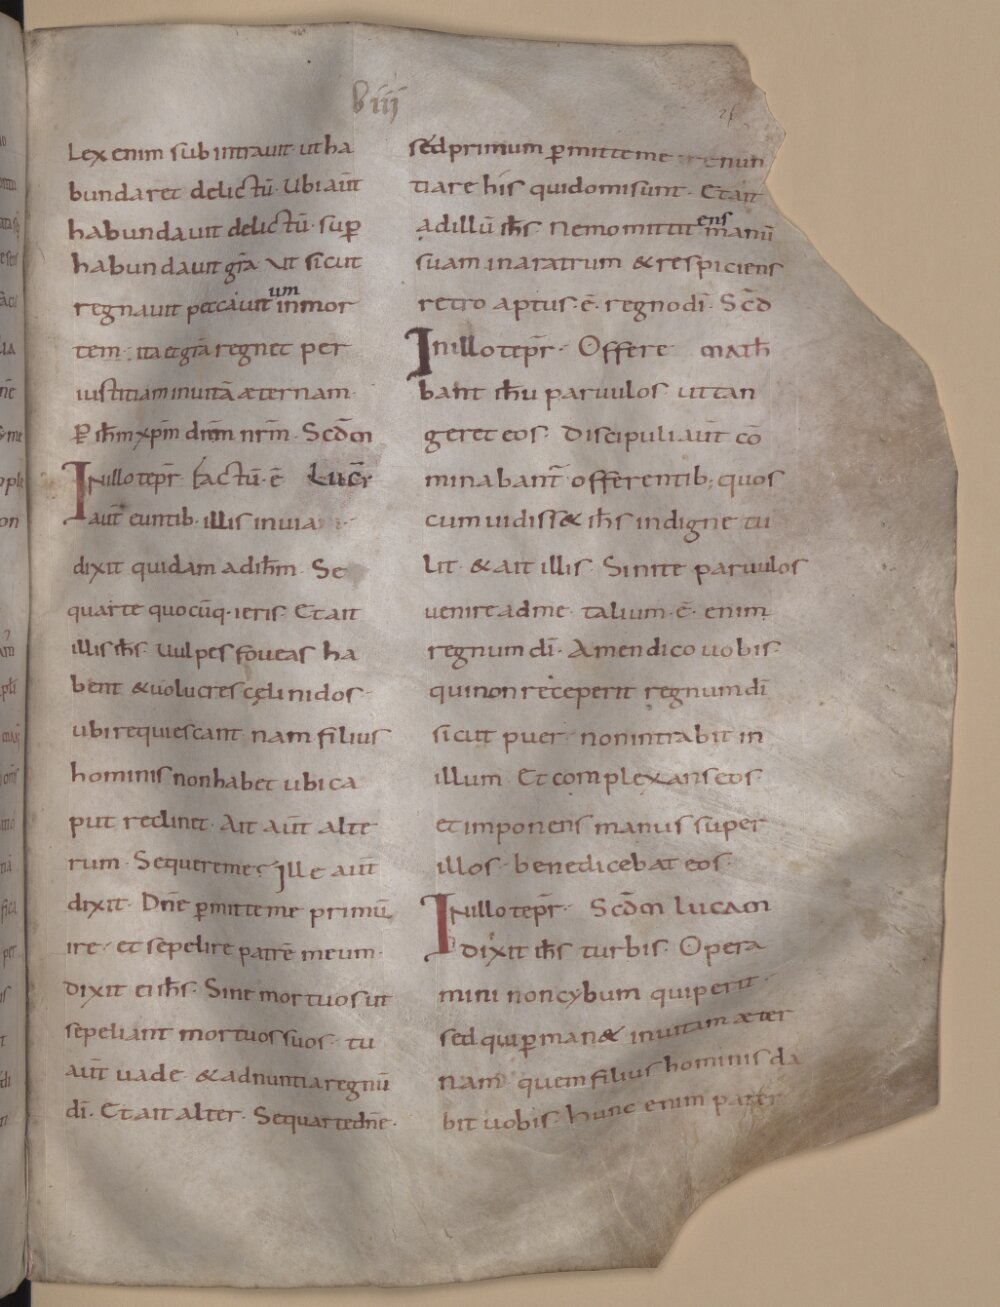 viii
26
Lex enim subintrauit ut ha
bundaret delictū· Ubi aūt
habundauit delictū· suꝑ
habundauit gr̄a· Vt sicut
regnauit peccauit um in mor
tem· ita et gr̄a regnet per
iustitiam in uitā æternam·
ꝑ ih̄m xp̄m dn̄m nr̄m· Scd̄m
In illo tēpr̄· factū· ē Lucā
aūt euntib· illis in uia
dixit quidam ad ih̄m· Se
quar te quocūq· ieris· Et ait
illis ih̄s· Uulpes foueas ha
bent & uolucres cęli nidos·
ubi requiescant· nam filius
hominis non habet ubi ca
put reclinet· Ait aūt alte
rum· Sequere me· Ille aūt
dixit· Dn̄e ꝑmitte me primū
ire· et sepelire patrē meum·
dixit ei ih̄s· Sine mortuos ut
sepeliant mortuos suos· tu
aūt uade· & adnuntia regnū
dī· Et ait alter· Sequar te dn̄e·
sed primum ꝑmitte me renun
tiare his qui domi sunt· Et ait
ad illū ih̄s· Nemo mittit ens manū
suam in aratrum & respiciens
retro aptus· ē· regno dī· Scd̄
In illo tēpr̄· Offere math̄
bant ih̄u paruulos ut tan
geret eos· Discipuli aūt cō
minabant̄ offerentib; quos
cum uidiss& ih̄s indigne tu
lit· & ait illis· Sinite paruulos
uenire ad me· talium· ē· enim
regnum dī· Amen dico uobis·
qui non receperit regnum dī
sicut puer· non intrabit in
illum· Et complexans eos·
et imponens manus super
illos· benedicebat eos·
In illo tēpr̄· Scd̄m lucam
dixit ih̄s turbis· Opera
mini non cybum qui perit·
sed qui ꝑman& in uitam æter
nam· quem filius hominis da
bit uobis· hunc enim pater